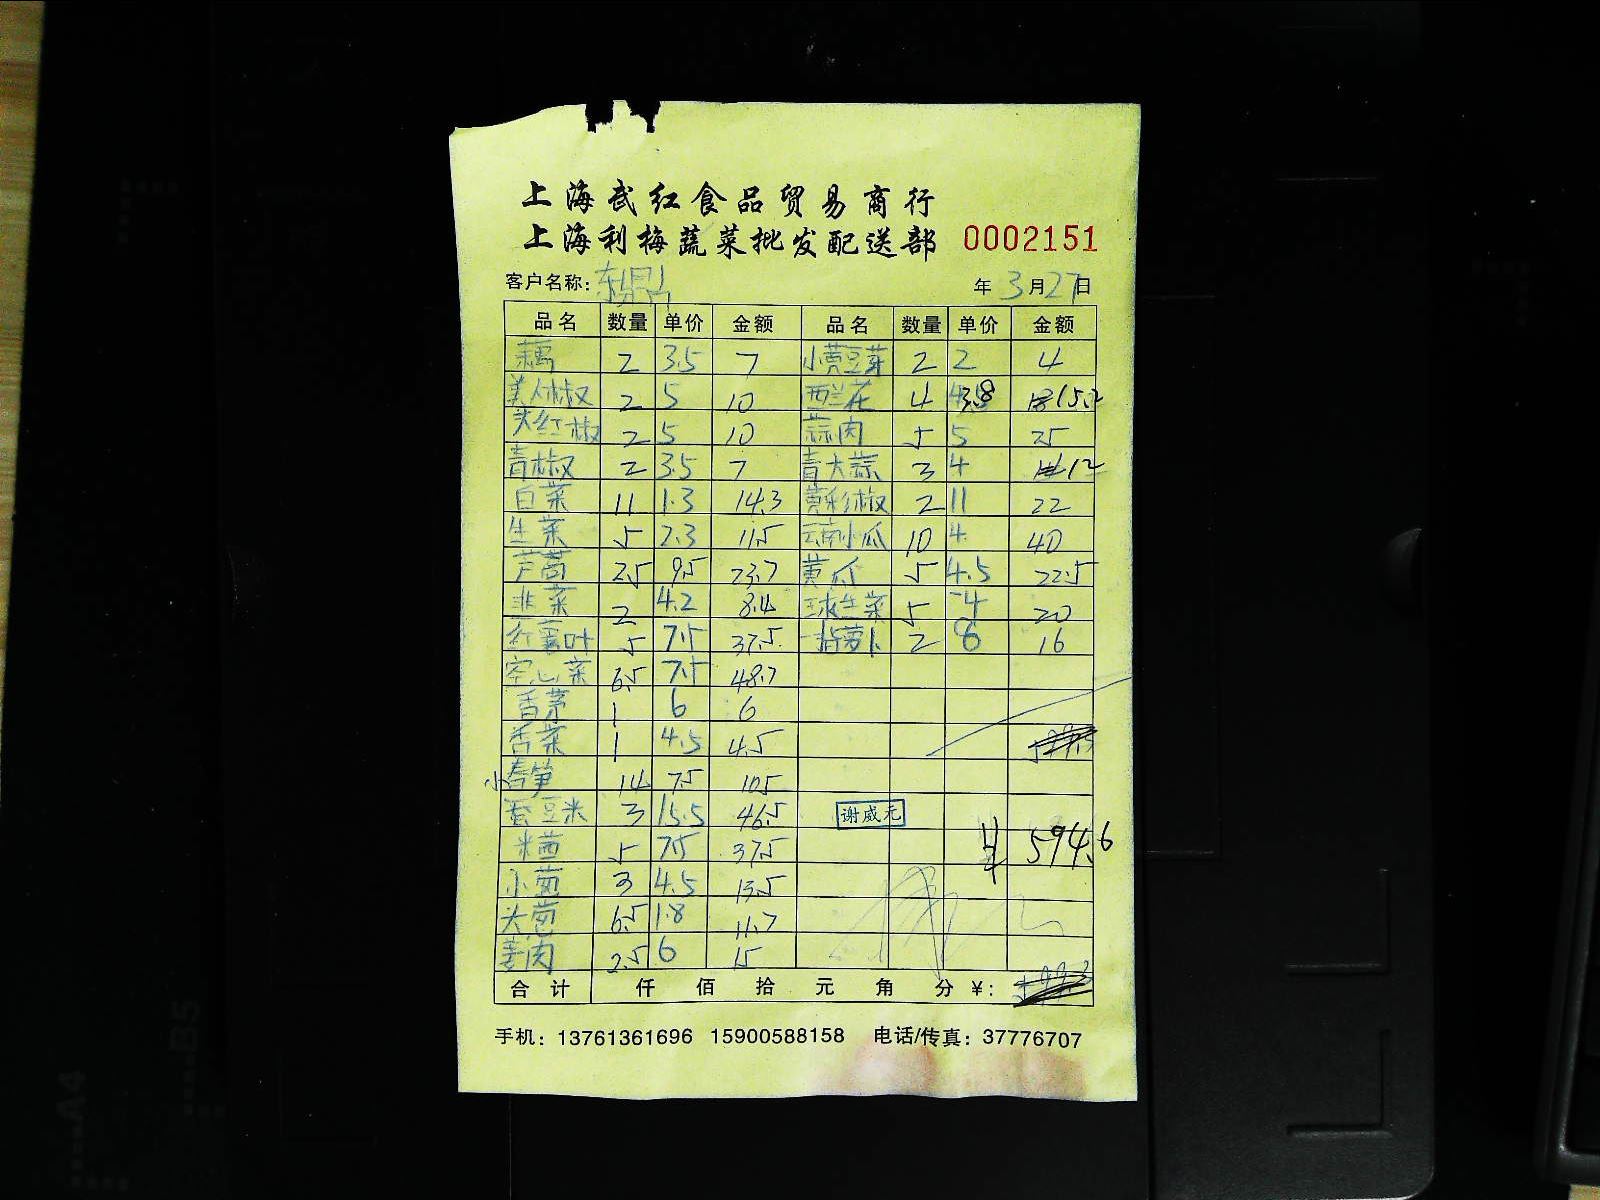 上海武红食品贸易商行
上海利梅蔬菜批发配送部 0002151
客户名称: 东鼎 年 3月27日
品名 数量 单价 金额 品名 数量 单价 金额
藕 2 3.5 7 小黄豆芽 2 2 4
美人椒 2 5 10 西兰花 4 3.8 15.2
尖红椒 2 5 10 蒜肉 5 5 25
青椒 2 3.5 7 青大蒜 3 4 12
白菜 11 1.3 14.3 黄彩椒 2 11 22
生菜 5 2.3 11.5 云南小瓜 10 4 40
芦蒿 2.5 9.5 23.7 黄瓜 5 4.5 22.5
韭菜 2 4.2 8.4 球生菜 5 4 20
红薯叶 5 7.5 37.5 2 8 16
空心菜 6.5 7.5 48.7
香茅 1 6 6
香菜 1 4.5 4.5
小春笋 14 7.5 105
蚕豆米 3 15.5 46.5 谢威元
米苋 5 7.5 37.5 ¥ 594.6
小葱 3 4.5 13.5
大葱 6.5 1.8 11.7
姜肉 2.5 6 15
合计 仟 佰 拾 元 角 分 ¥:
手机: 13761361696 15900588158 电话/传真: 37776707
A4
B5